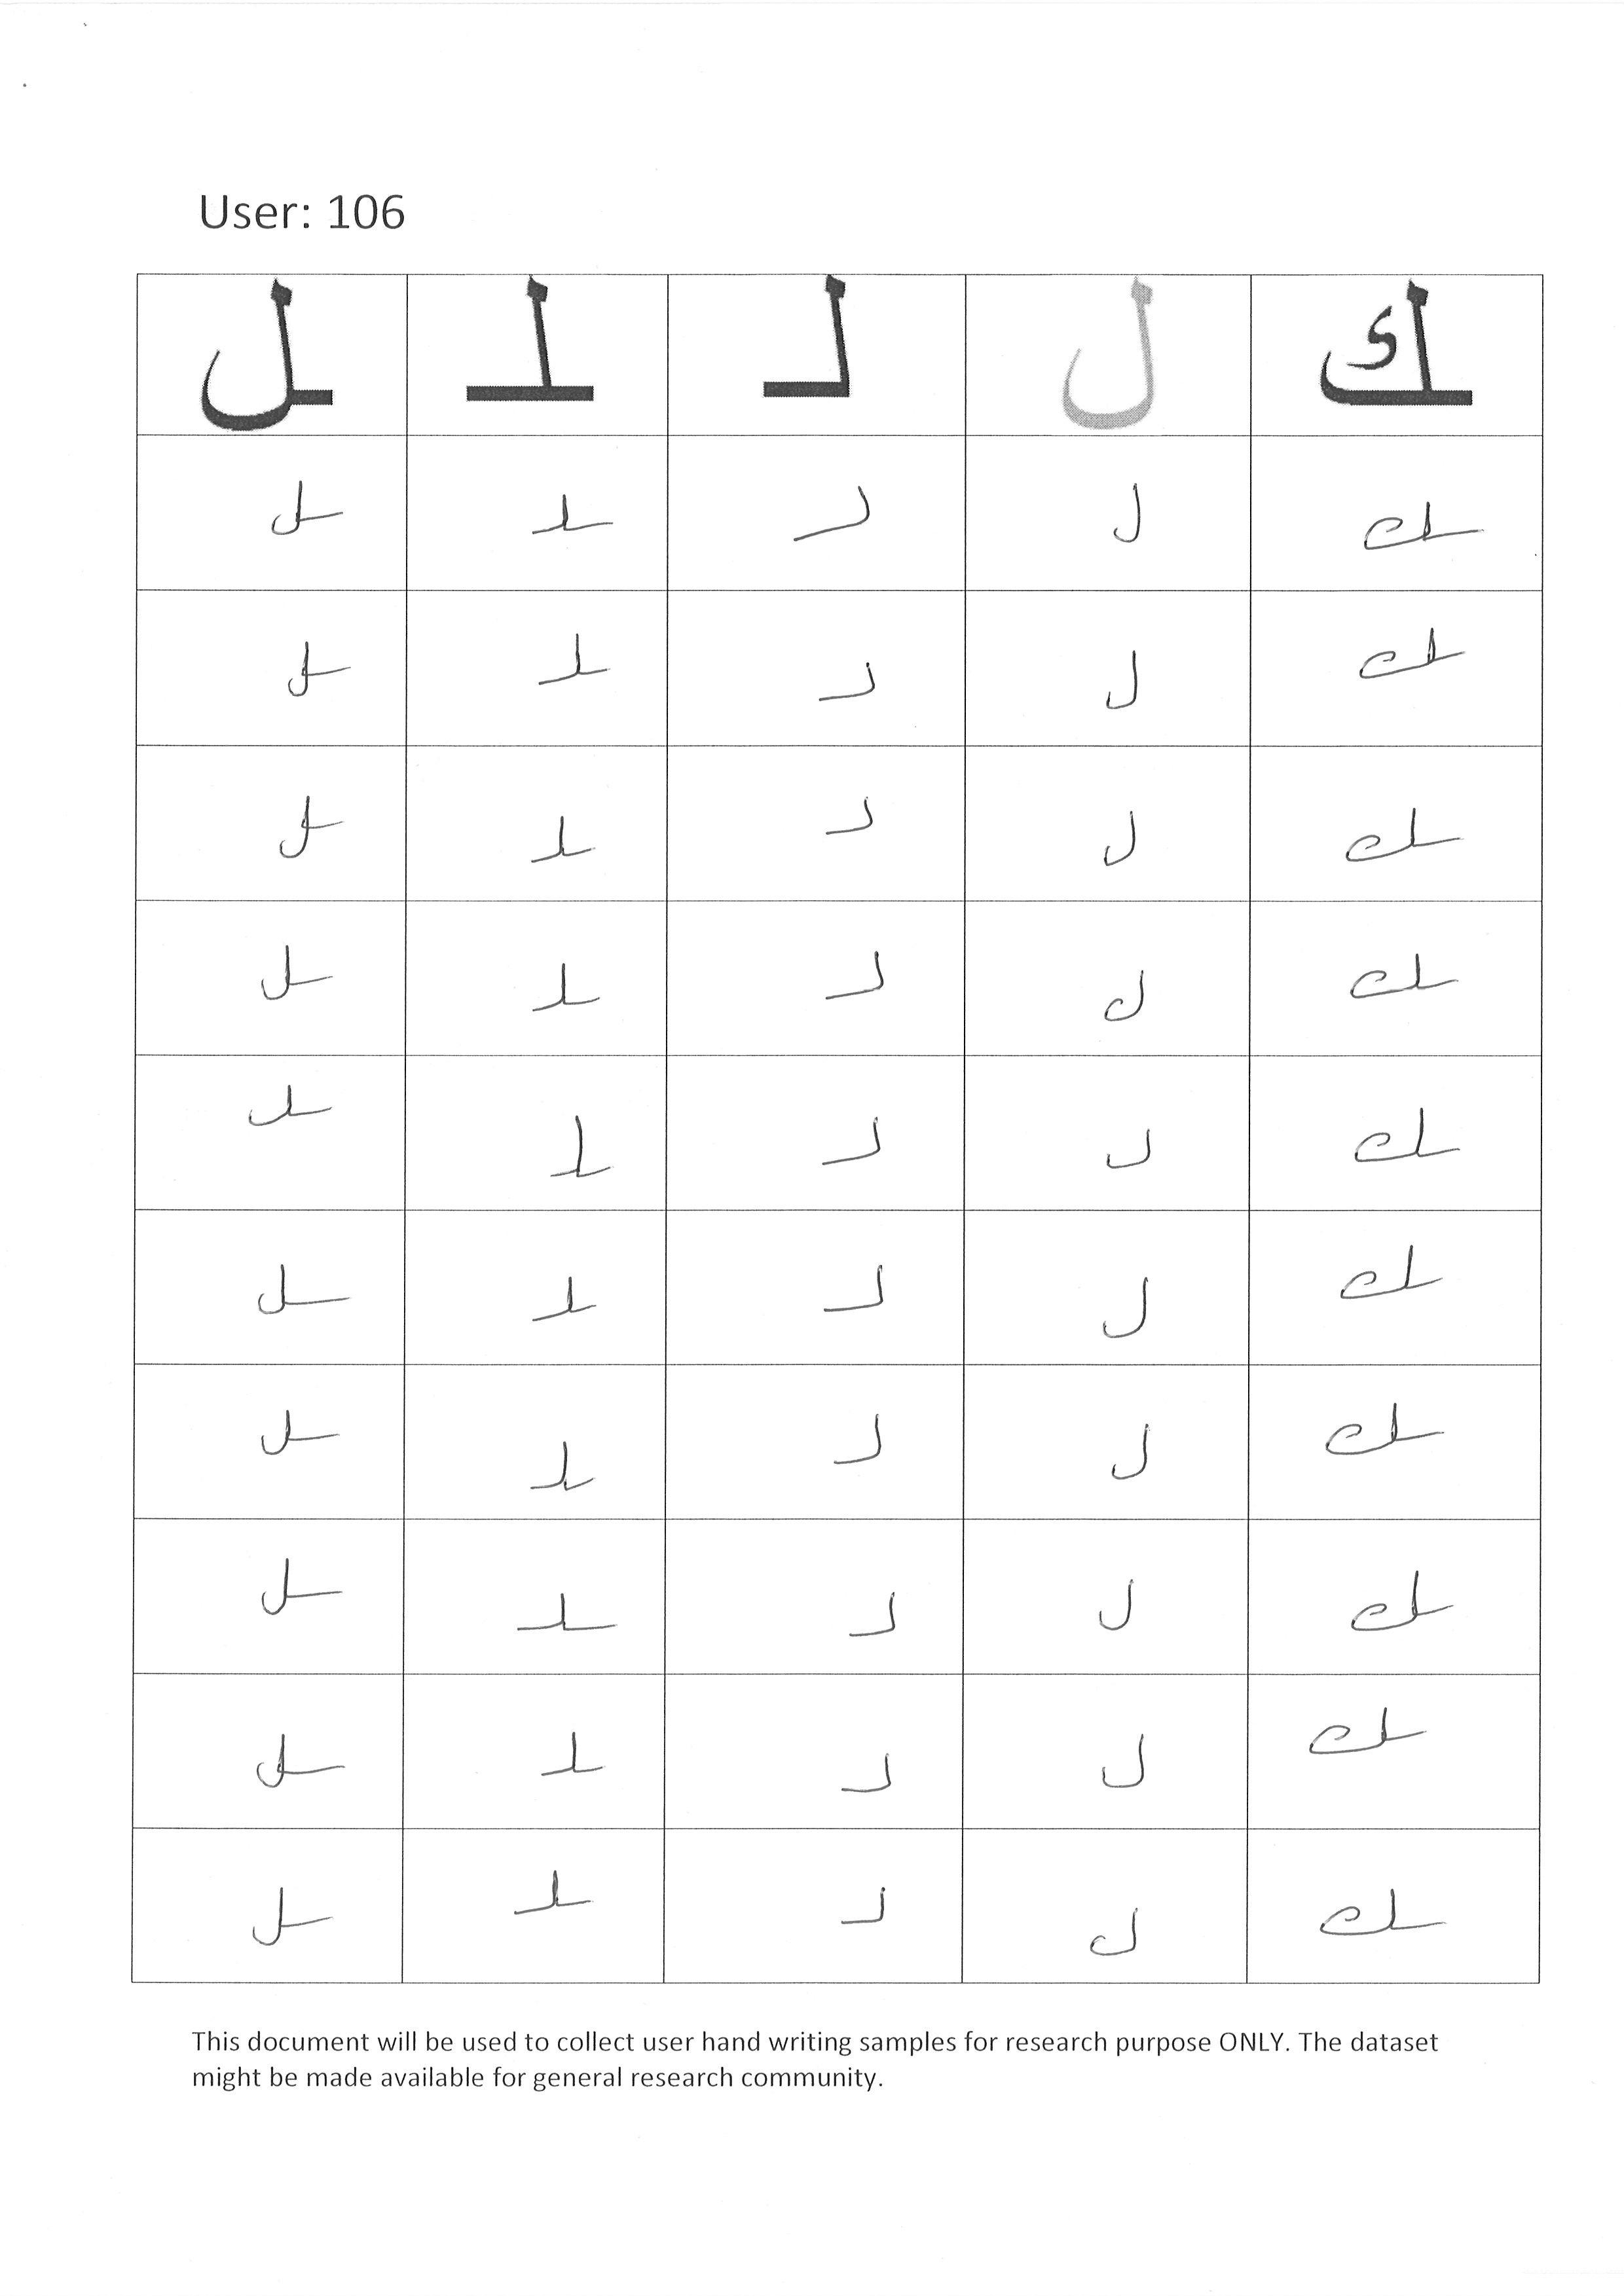 User: 106
ـل ـلـ لـ ل ـك
ـل ـلـ لـ ل ـك
ـل ـلـ لـ ل ـك
ـل ـلـ لـ ل ـك
ـل ـلـ لـ ل ـك
ـل ـلـ لـ ل ـك
ـل ـلـ لـ ل ـك
ـل ـلـ لـ ل ـك
ـل ـلـ لـ ل ـك
ـل ـلـ لـ ل ـك
ـل ـلـ لـ ل ـك
This document will be used to collect user hand writing samples for research purpose ONLY. The dataset
might be made available for general research community.